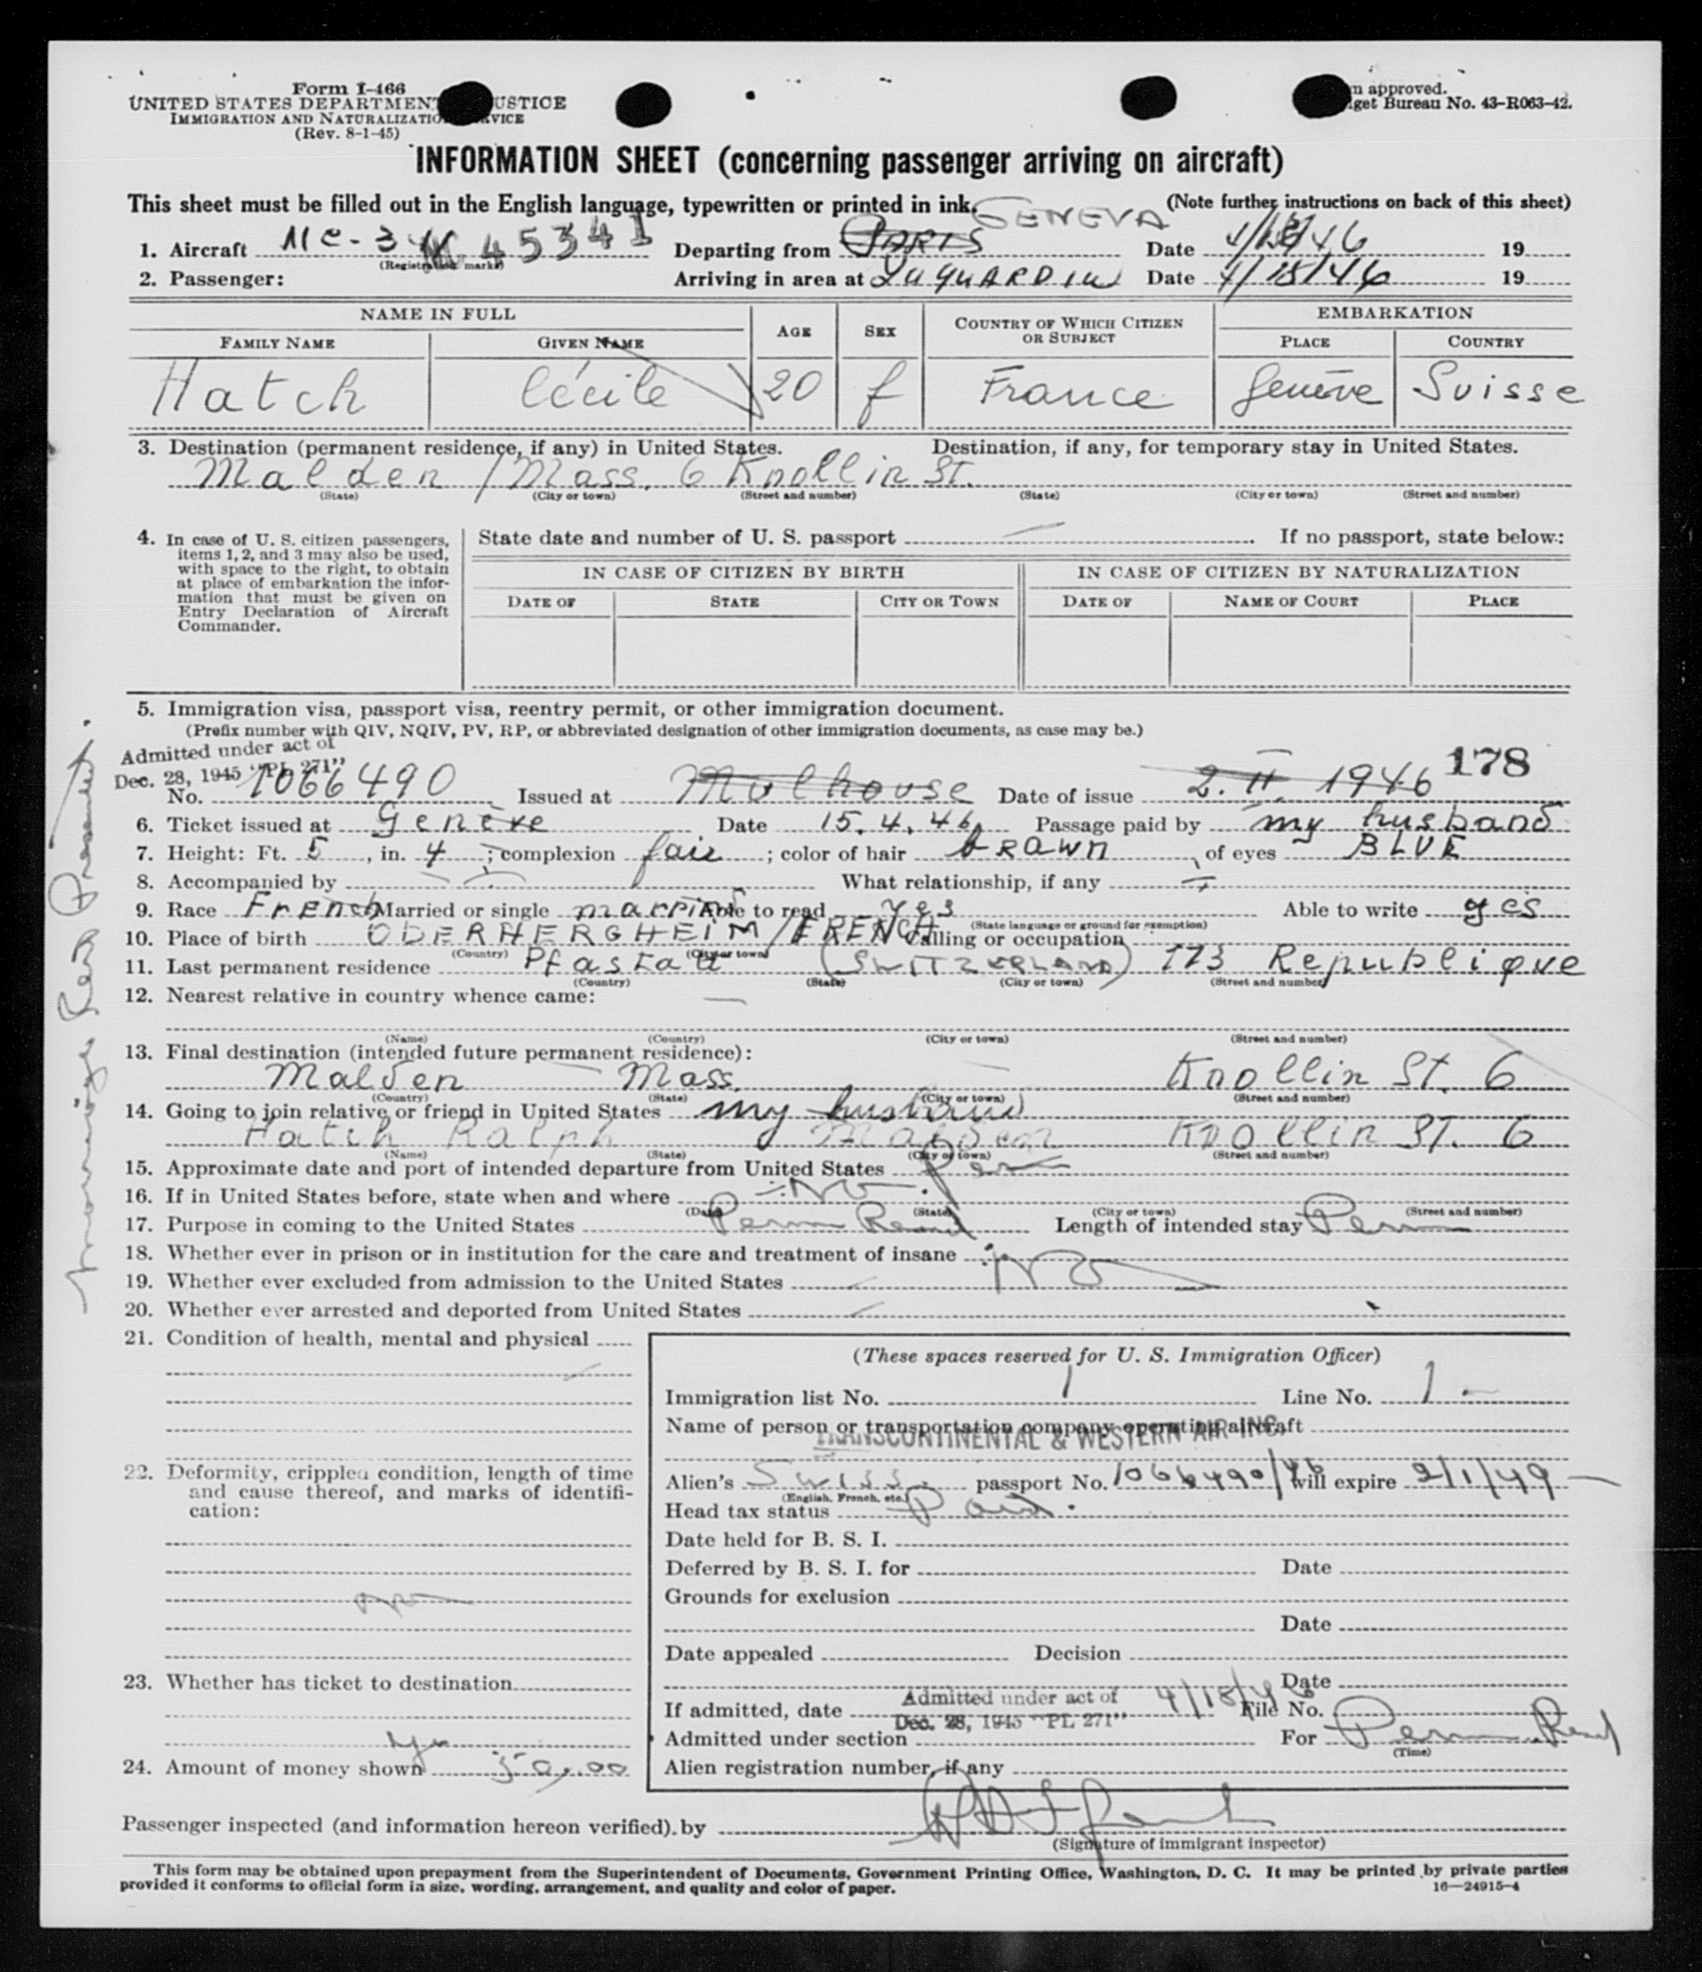 Form I-466
UNITED STATES DEPARTMENT USTICE
IMMIGRATION AND NATURALIZATIO RVICE
(Rev. 8-1-45)
m approved.
get Bureau No. 43-R063-42.
INFORMATION SHEET (concerning passenger arriving on aircraft)
This sheet must be filled out in the English language, typewritten or printed in ink. (Note further instructions on back of this sheet)
GENEVA
1. Aircraft 45341 Departing from PARIS Date 4/18/46 19
(Registration marks)
2. Passenger: Arriving in area at Date 4/18/46 19
NAME IN FULL AGE SEX COUNTRY OF WHICH CITIZEN OR SUBJECT EMBARKATION
FAMILY NAME GIVEN NAME PLACE COUNTRY
Hatch Cécile 20 f France Genève Suisse
3. Destination (permanent residence, if any) in United States. Destination, if any, for temporary stay in United States.
Malden / Mass. 6 Knollin St.
(State) (City or town) (Street and number) (State) (City or town) (Street and number)
4. In case of U. S. citizen passengers, items 1, 2, and 3 may also be used, with space to the right, to obtain at place of embarkation the information that must be given on Entry Declaration of Aircraft Commander.
State date and number of U. S. passport If no passport, state below:
IN CASE OF CITIZEN BY BIRTH IN CASE OF CITIZEN BY NATURALIZATION
DATE OF STATE CITY OR TOWN DATE OF NAME OF COURT PLACE
5. Immigration visa, passport visa, reentry permit, or other immigration document.
(Prefix number with QIV, NQIV, PV, RP, or abbreviated designation of other immigration documents, as case may be.)
Admitted under act of
Dec. 28, 1945 "PL 271"
178
No. 1066490 Issued at Mulhouse Date of issue 2. II. 1946
6. Ticket issued at Genève Date 15.4.46 Passage paid by my husband
7. Height: Ft. 5, in. 4; complexion fair; color of hair brown, of eyes BLUE
8. Accompanied by What relationship, if any
9. Race French Married or single married Able to read yes Able to write yes
(State language or ground for exemption)
10. Place of birth OBERHERGHEIM / FRENCH Calling or occupation
(Country) (City or town)
11. Last permanent residence Pfastatt (SWITZERLAND) 173 Republique
(Country) (State) (City or town) (Street and number)
12. Nearest relative in country whence came: —
(Name) (Country) (City or town) (Street and number)
13. Final destination (intended future permanent residence):
Malden Mass. Knollin St. 6
(Country) (State) (City or town) (Street and number)
14. Going to join relative or friend in United States my husband
Hatch Ralph Malden Knollin St. 6
(Name) (State) (City or town) (Street and number)
15. Approximate date and port of intended departure from United States
16. If in United States before, state when and where No
(Date) (State) (City or town) (Street and number)
17. Purpose in coming to the United States Perm Resd Length of intended stay Perm
18. Whether ever in prison or in institution for the care and treatment of insane No
19. Whether ever excluded from admission to the United States
20. Whether ever arrested and deported from United States
21. Condition of health, mental and physical
22. Deformity, crippled condition, length of time and cause thereof, and marks of identification:
23. Whether has ticket to destination
Yes
24. Amount of money shown 50.00
(These spaces reserved for U. S. Immigration Officer)
Immigration list No. 1 Line No. 1
Name of person or transportation company operating aircraft
TRANSCONTINENTAL & WESTERN AIR INC.
Alien's Swiss passport No. 1066490/46 will expire 2/1/49
(English, French, etc.)
Head tax status Paid
Date held for B. S. I.
Deferred by B. S. I. for Date
Grounds for exclusion
Date
Date appealed Decision
Date
If admitted, date Admitted under act of Dec. 28, 1945 "PL 271" 4/18/46 File No.
Admitted under section For Perm Resd
(Time)
Alien registration number, if any
Passenger inspected (and information hereon verified) by
(Signature of immigrant inspector)
This form may be obtained upon prepayment from the Superintendent of Documents, Government Printing Office, Washington, D. C. It may be printed by private parties
provided it conforms to official form in size, wording, arrangement, and quality and color of paper. 16—24915-4